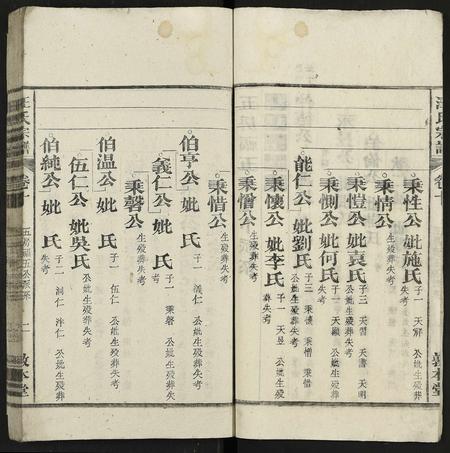 汪氏宗譜
卷十
敦本堂
秉性公妣施氏 子一 天解 公妣生殁葬失考
秉情公 生殁葬失考
秉愷公妣袁氏 子三 天晉 天書 天明 公妣生殁葬失考
秉惻公妣何氏 子一 天顯 公妣生殁葬失考
能仁公妣劉氏 子三 秉懷 秉憎 秉惜 公妣生殁葬失考
秉懷公妣李氏 子一 天昱 公妣生殁葬失考
秉憎公 生殁葬失考
秉惜公 生殁葬失考
伯亨公妣 氏 子一 義仁 公妣生殁葬失考
義仁公妣 氏 子一 秉磬 公妣生殁葬失考
秉磬公 生殁葬失考
伯温公妣 氏 子一 伍仁 公妣生殁葬失考
伍仁公妣吳氏 公妣生殁葬失考
伯純公妣 氏 子二 洞仁 泮仁 公妣生殁葬失考
汪氏宗譜
卷十
二
敦本堂